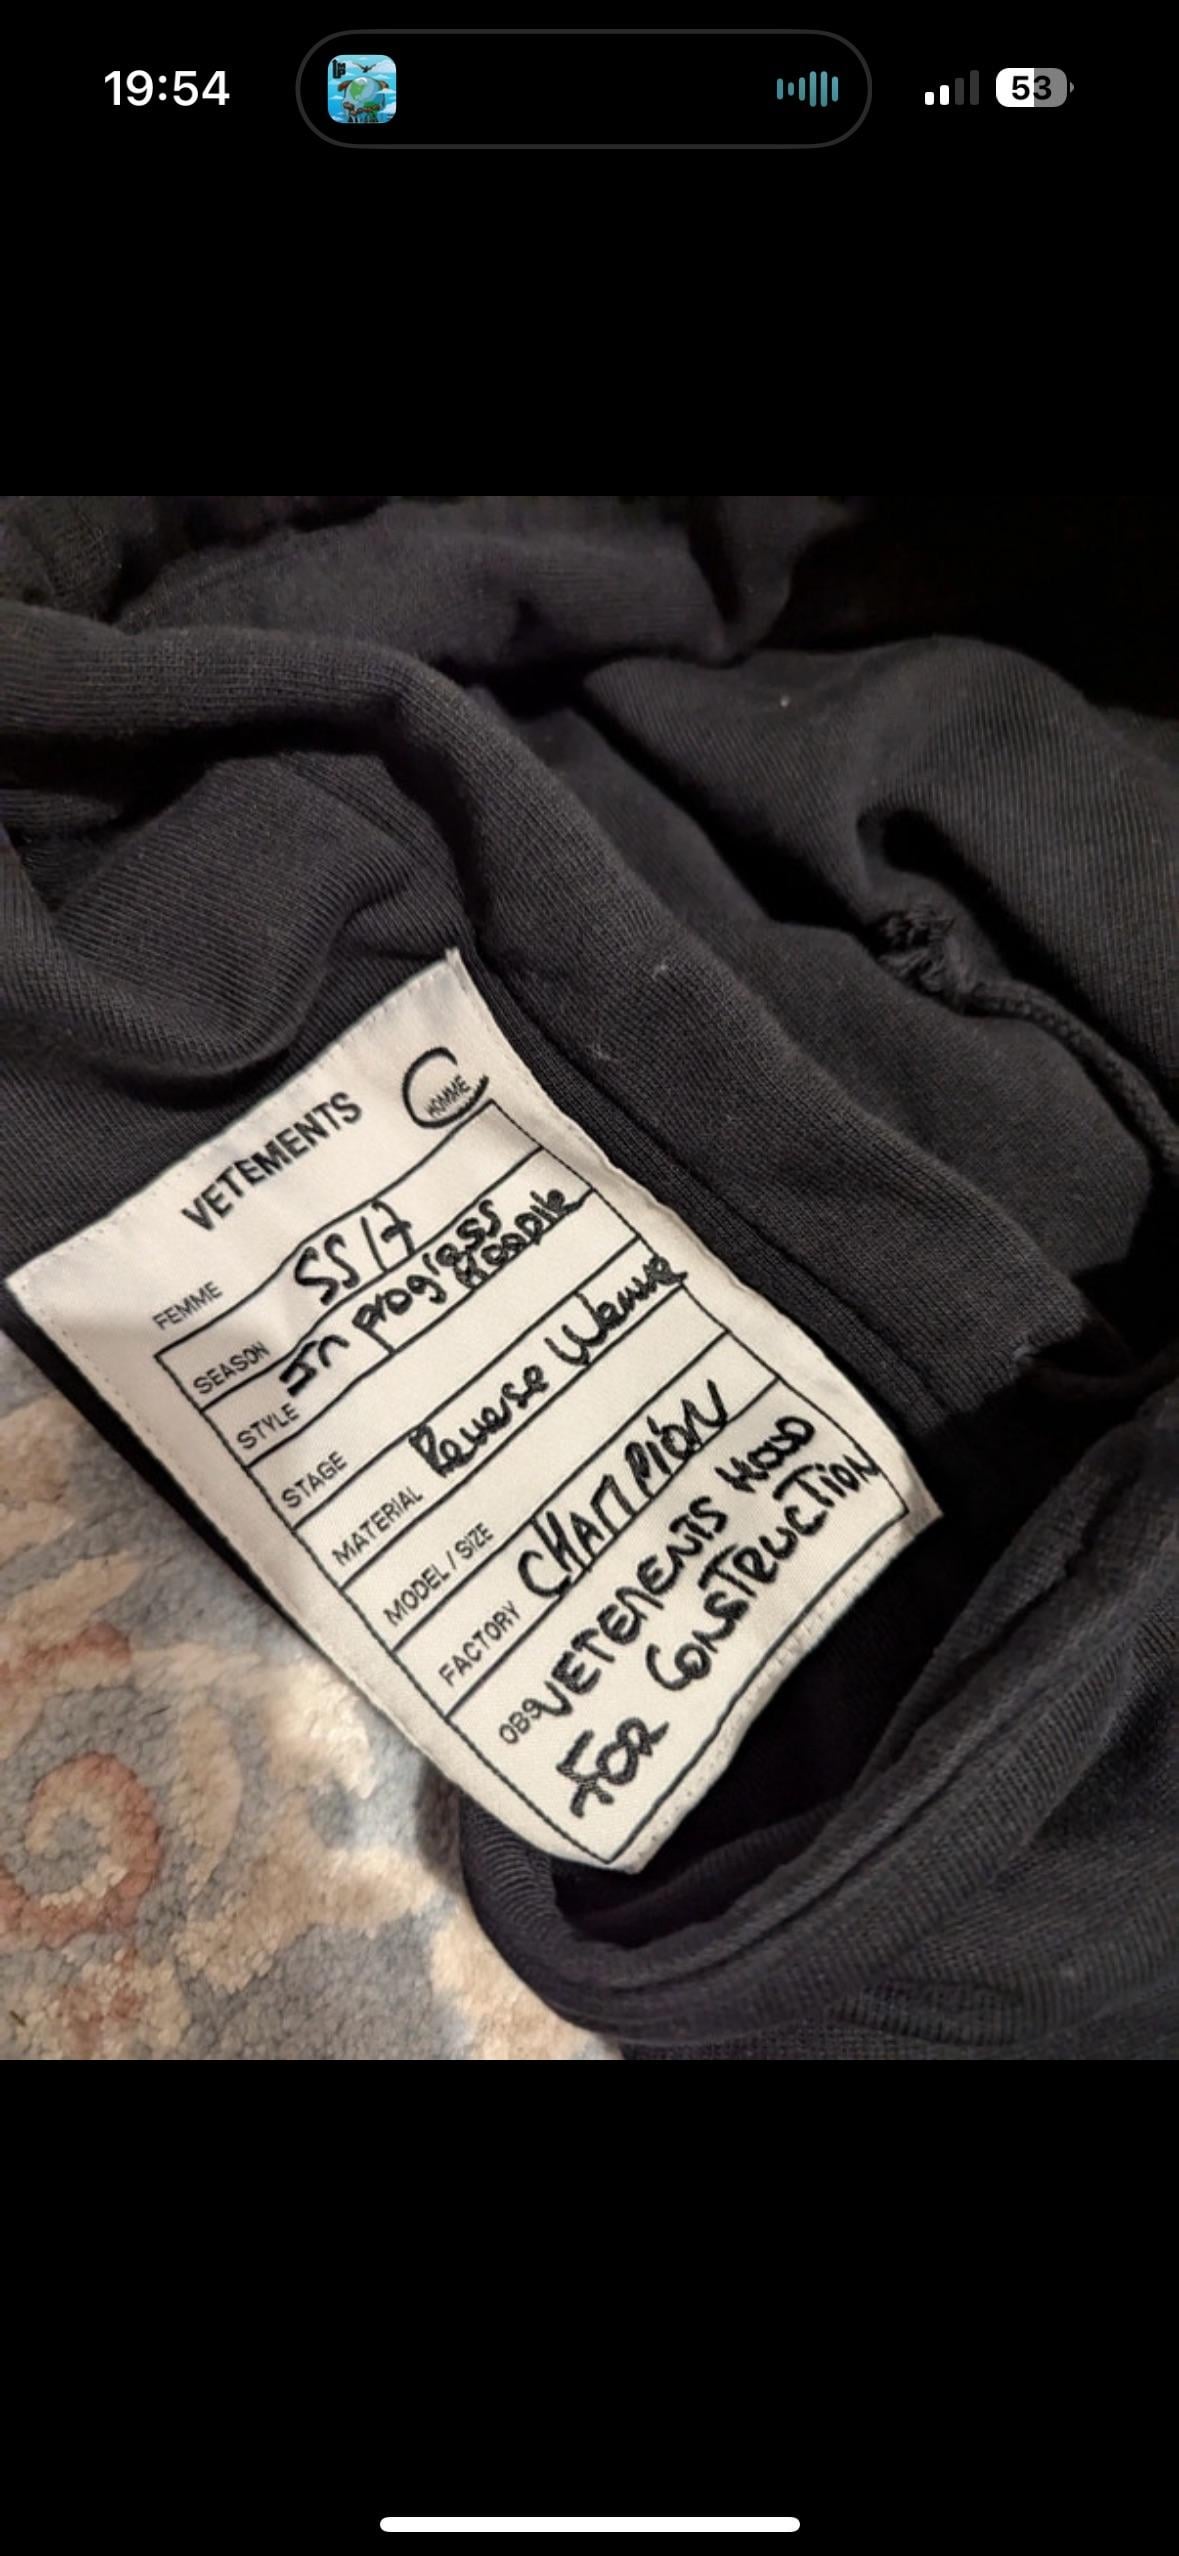 19:54
53
VETEMENTS
FEMME
HOMME
SEASON SS17
STYLE In progress
Hoodie
STAGE
MATERIAL Reverse Weave
MODEL / SIZE
FACTORY CHAMPION
OBS VETEMENTS HOOD
FOR CONSTRUCTION